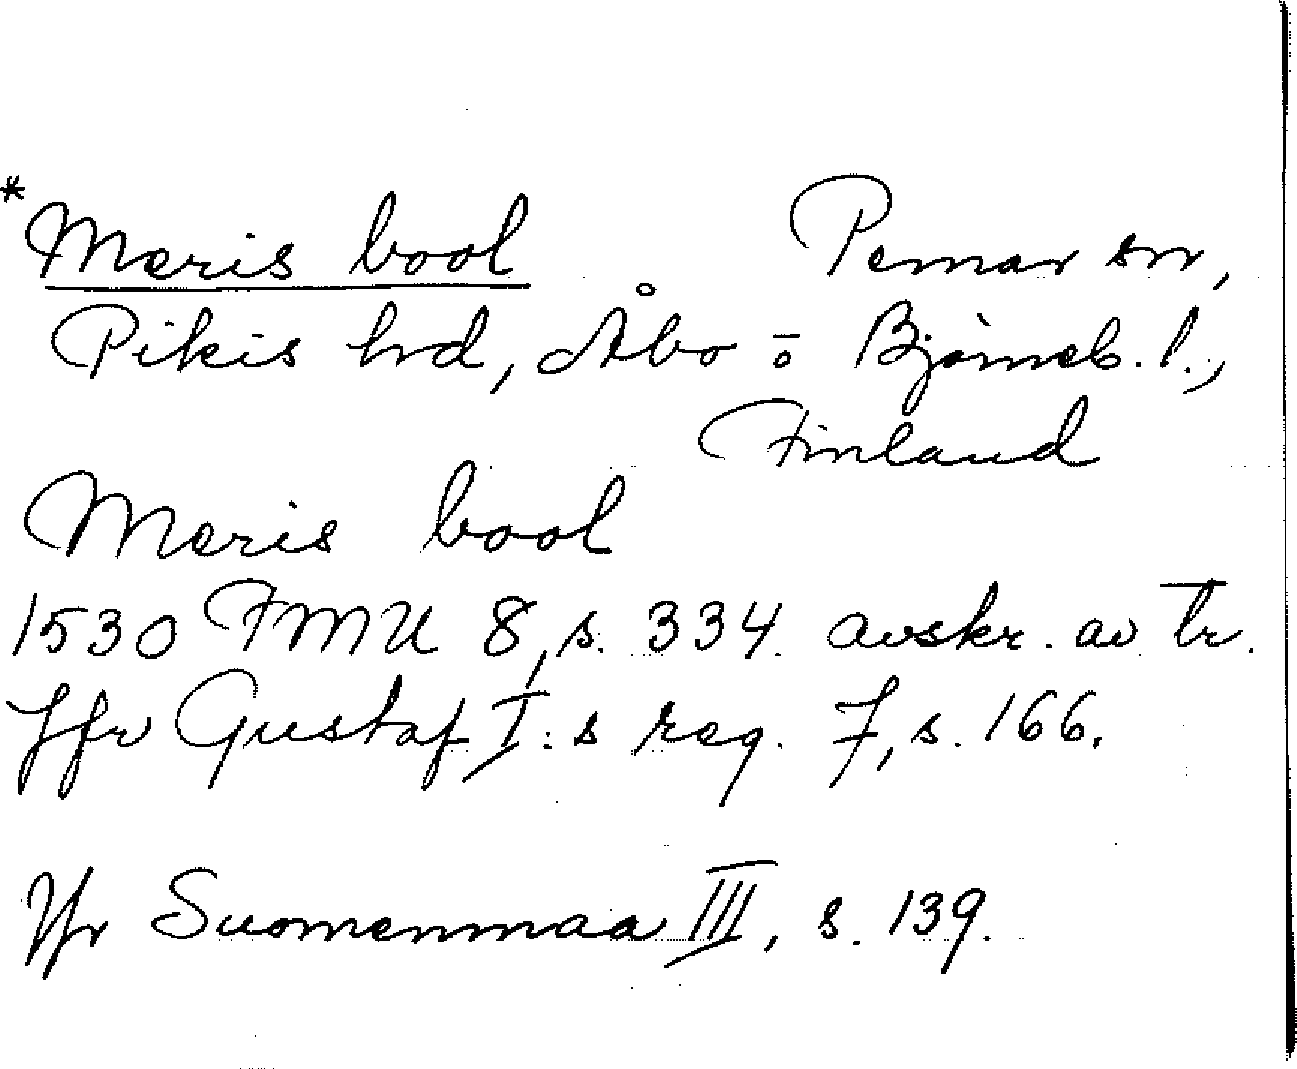 *Meris bool Pemar sn,
Pikis hrd, Åbo o Björneb. l.,
Finland
Meris bool
1530 FMU 8, s. 334. avskr. av tr.
Jfr Gustaf I:s reg. 7, s. 166.
Jfr Suomenmaa III, s. 139.